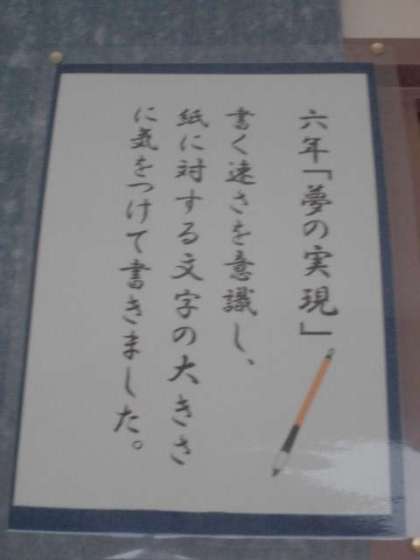 六年「夢の実現」
書く速さを意識し、
紙に対する文字の大きさ
に気をつけて書きました。